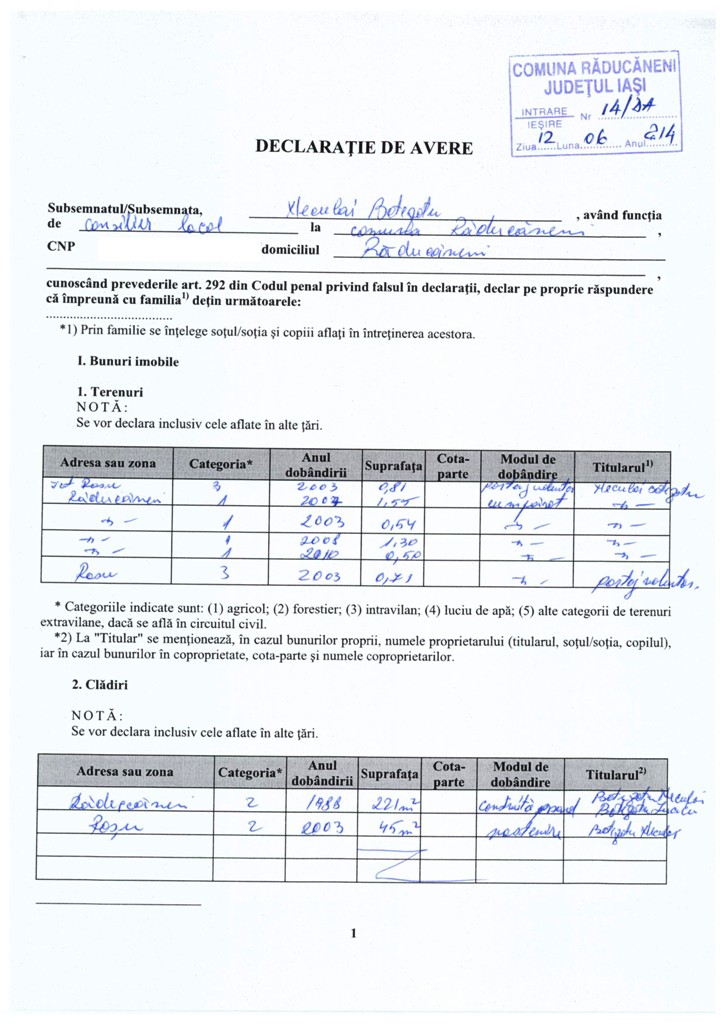 COMUNA RĂDUCĂNENI
JUDEŢUL IAŞI
INTRARE
IEŞIRE Nr 14/DA
Ziua 12 Luna 06 Anul 2014
DECLARAŢIE DE AVERE
Subsemnatul/Subsemnata, Neculai Botezatu, având funcţia
de consilier local la comuna Răducăneni,
CNP domiciliul Răducăneni
,
cunoscând prevederile art. 292 din Codul penal privind falsul în declaraţii, declar pe proprie răspundere
că împreună cu familia1) deţin următoarele:
*1) Prin familie se înţelege soţul/soţia şi copiii aflaţi în întreţinerea acestora.
I. Bunuri imobile
1. Terenuri
NOTĂ:
Se vor declara inclusiv cele aflate în alte ţări.
Adresa sau zona Categoria* Anul dobândirii Suprafaţa Cota-parte Modul de dobândire Titularul1)
Rosu 3 2003 0,81
Răducăneni 1 2007 1,55 cumpărat -"-
-"- 1 2003 0,54 -"- -"-
-"- 1 2008 1,30 -"- -"-
-"- 1 2010 0,50 -"- -"-
Rosu 3 2003 0,71 -"-
* Categoriile indicate sunt: (1) agricol; (2) forestier; (3) intravilan; (4) luciu de apă; (5) alte categorii de terenuri
extravilane, dacă se află în circuitul civil.
*2) La "Titular" se menţionează, în cazul bunurilor proprii, numele proprietarului (titularul, soţul/soţia, copilul),
iar în cazul bunurilor în coproprietate, cota-parte şi numele coproprietarilor.
2. Clădiri
NOTĂ:
Se vor declara inclusiv cele aflate în alte ţări.
Adresa sau zona Categoria* Anul dobândirii Suprafaţa Cota-parte Modul de dobândire Titularul2)
Răducăneni 2 1988 221m² construită Botezatu Neculai
Roşu 2 2003 45m² mostenire Botezatu Neculai
1